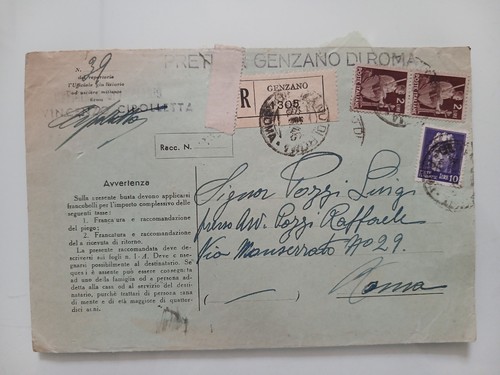 N. 39
del repertorio
PRETURA GENZANO DI ROMA
VINCENZO CIPOLLETTA
R
GENZANO
1305
ROMA
POSTE ITALIANE
2 LIRE
POSTE ITALIANE
2 LIRE
LIRE 10
Racc. N.
Avvertenze
Sulla presente busta devono applicarsi
francobolli per l'importo complessivo delle
seguenti tasse:
1. Francatura e raccomandazione
del piego;
2. Francatura e raccomandazione
della ricevuta di ritorno.
La presente raccomandata deve de-
scriversi sui fogli n. 1-A. Deve conse-
gnarsi possibilmente al destinatario. Se
questi è assente può essere consegnata
ad uno della famiglia od a persona ad-
detta alla casa od al servizio del desti-
natario, purchè trattisi di persona sana
di mente e di età maggiore di quattor-
dici anni.
Signor Pozzi Luigi
presso Avv. Pozzi Raffaele
Via Monserrato N° 29.
Roma